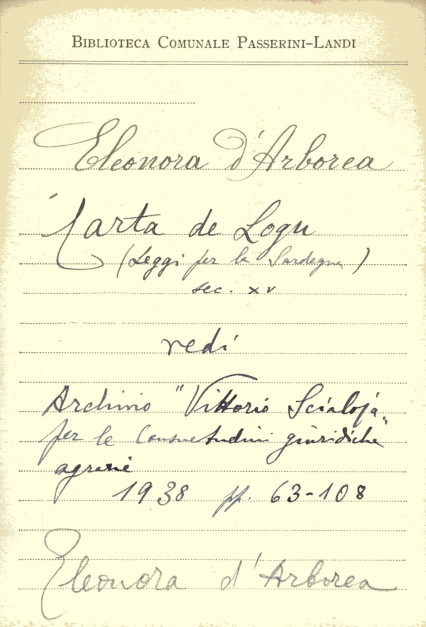 BIBLIOTECA COMUNALE PASSERINI-LANDI
Eleonora d'Arborea
Carta de Logu
(Leggi per la Sardegna)
sec. XV
vedi
Archivio "Vittorio Scialoja"
per le Consuetudini giuridiche
agrarie
1938 pp. 63-108
Eleonora d'Arborea